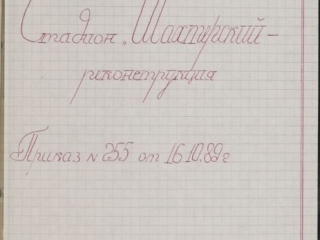 Стадион „Шахтерский –
реконструкция
Приказ N 255 от 16.10.89 г